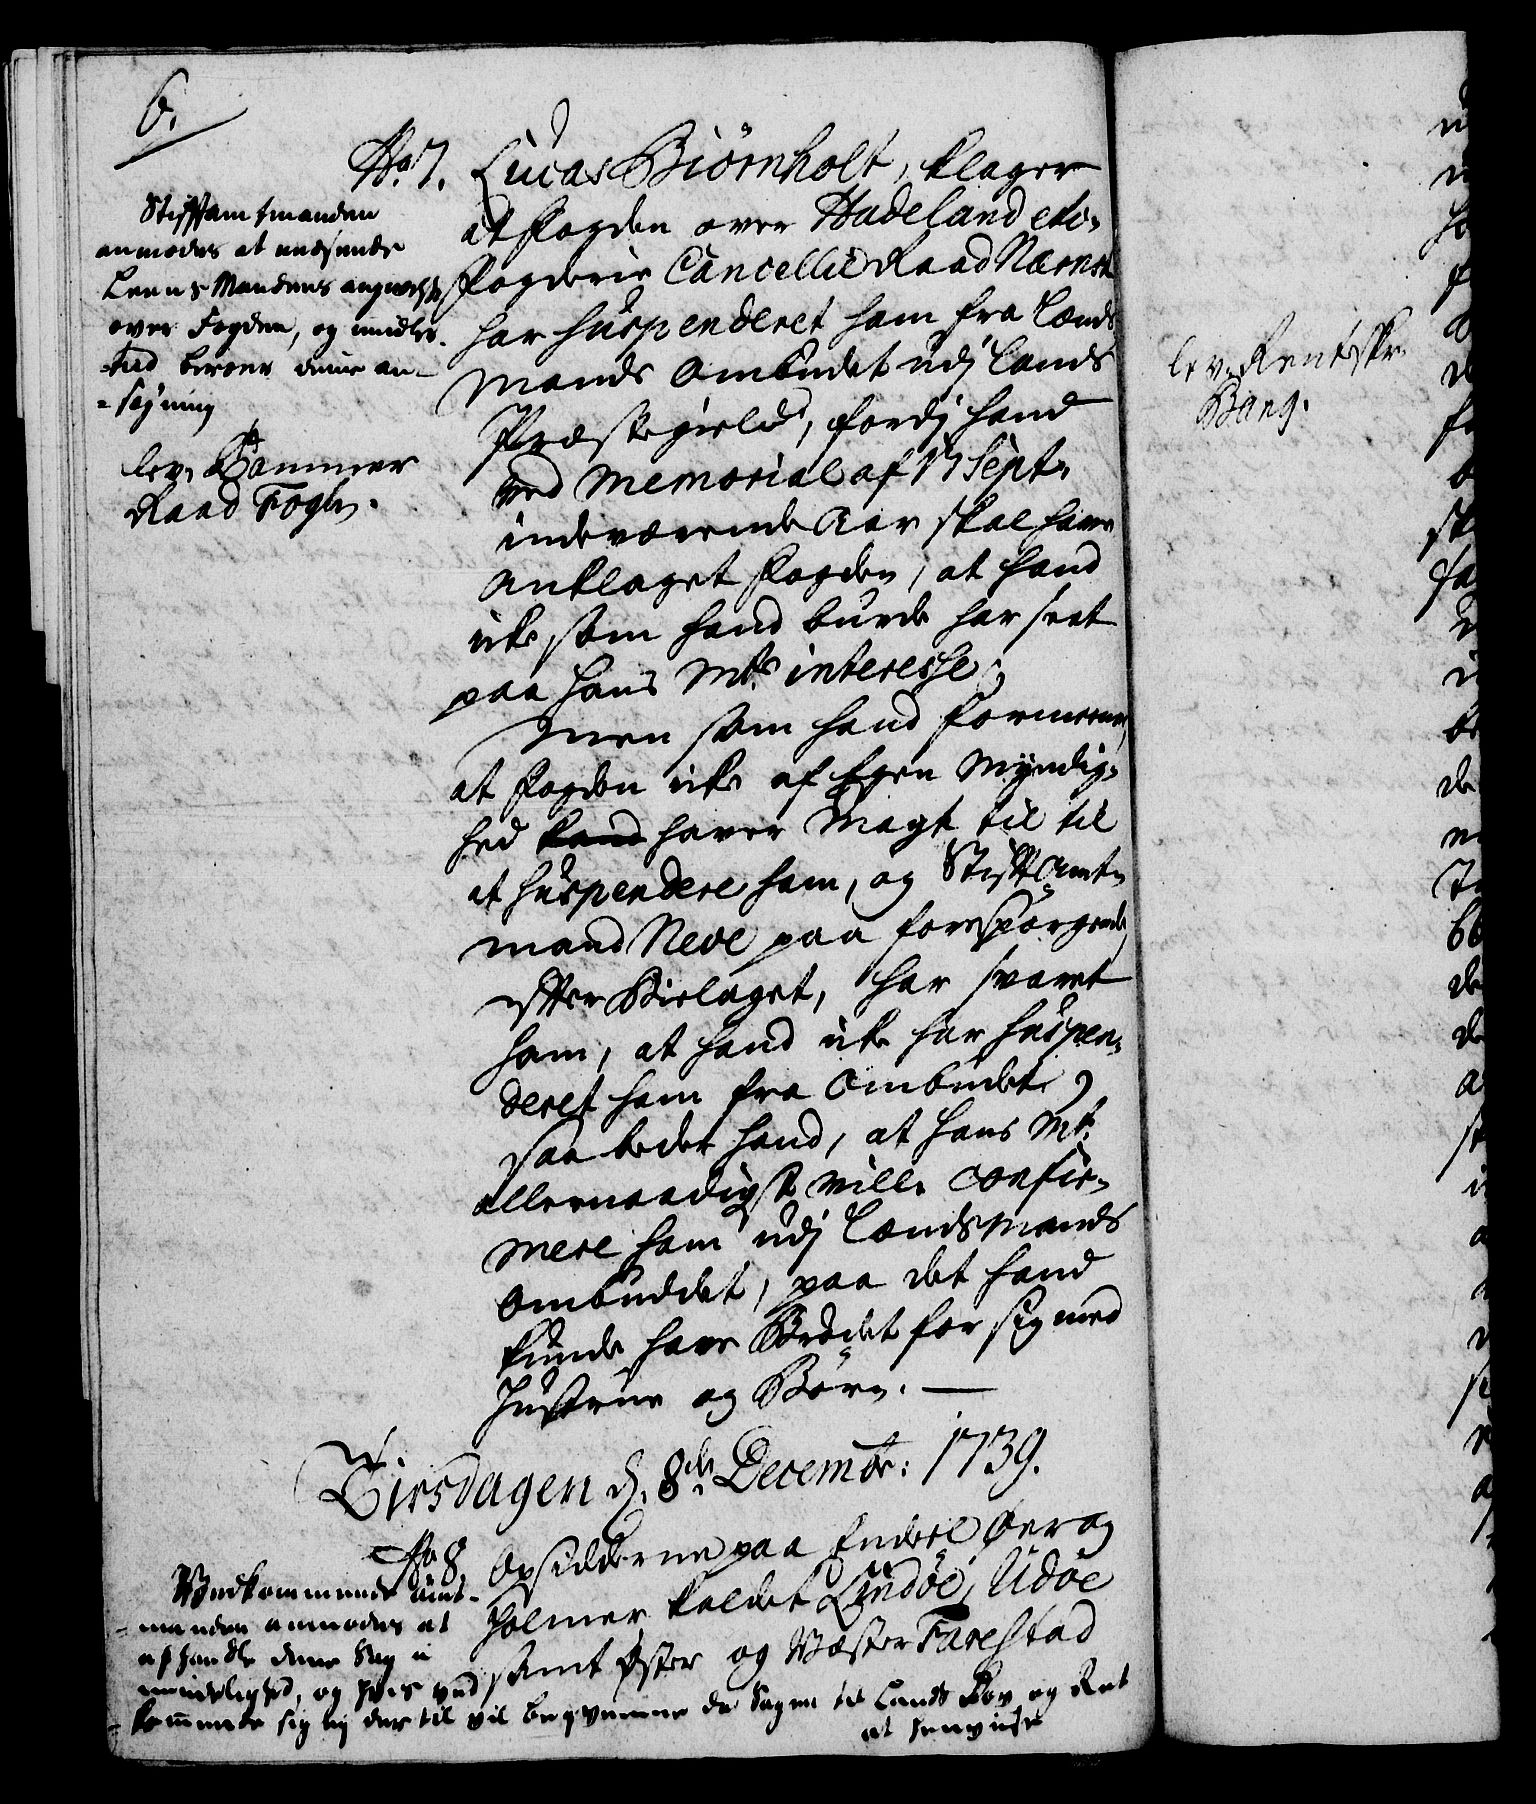 6.
No 7. Lucas Biørnholt, klager
at Fogden over Hadeland etc.
Fogderie Cancellie Raad
har suspenderet ham fra Lænds
Mands Ombudet udj Lands
Præstegield, fordj hand
ved Memorial af 17 Sept.
indeværende Aar skal have
anklaget Fogden, at hand
icke som hand burde har seet
paa hans Mts interesse;
Men som hand formeener,
at Fogden icke af Egen Myndig-
hed kand haver Magt til til
at suspendere ham, og Stift Amt-
mand Neve paa forespørgende
efter Bielaget, har svaret
ham, at hand icke har suspen-
deret ham fra Ombudet,
saa beder hand, at hans Mt.
allernaadigst ville confir-
mere ham udj Lændsmands
Ombuddet, paa det hand
kunde have Brødet for sig med
Hustrue og Børn. —
Stiftamtmanden
anmodes at
Lensmandens
over Fogden, og imidler-
tid beroer denne an-
søgning
lev. Cammer
Raad Fogh.
Tirsdagen d. 8de Decembr: 1739.
No 8. Opsidderne paa Endeel Øer og
Holmer kaldet Lindøe, Udøe
samt Øster og Wæster Farestad
Vedkommende Amt-
manden anmodes at
afhandle denne Sag i
mindelighed, og hvis ved-
kommende sig ej der til vil beqvemme da Sagen til Lands Lov og Ret
at henviise
lev. Renteskr.
Bang.